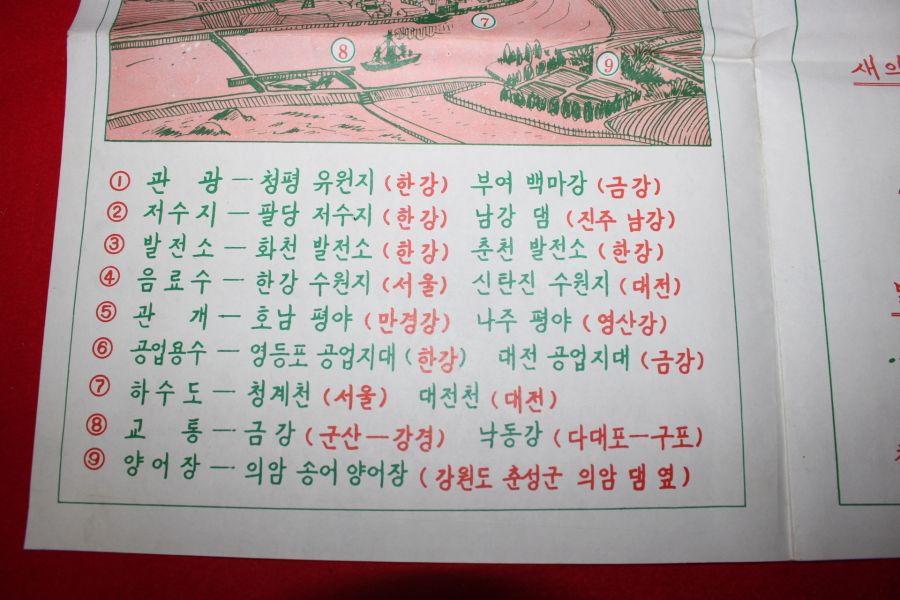 ⑦
⑧
⑨
① 관 광 — 청평 유원지 (한강) 부여 백마강 (금강)
② 저수지 — 팔당 저수지 (한강) 남강 댐 (진주 남강)
③ 발전소 — 화천 발전소 (한강) 춘천 발전소 (한강)
④ 음료수 — 한강 수원지 (서울) 신탄진 수원지 (대전)
⑤ 관 개 — 호남 평야 (만경강) 나주 평야 (영산강)
⑥ 공업용수 — 영등포 공업지대 (한강) 대전 공업지대 (금강)
⑦ 하수도 — 청계천 (서울) 대전천 (대전)
⑧ 교 통 — 금강 (군산—강경) 낙동강 (다대포—구포)
⑨ 양어장 — 의암 송어 양어장 (강원도 춘성군 의암 댐 옆)
새의